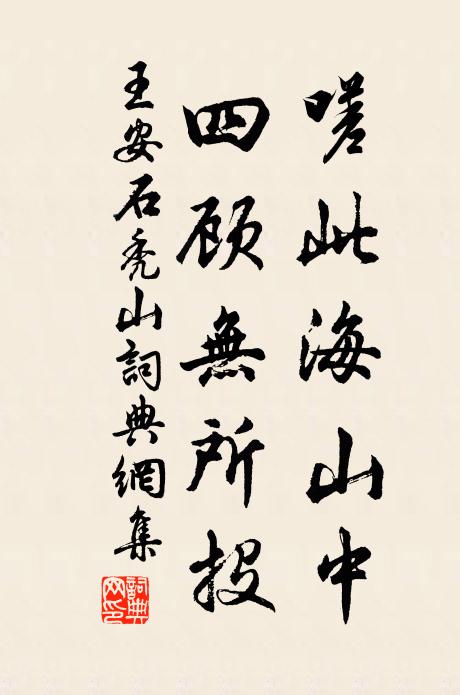 嗟此海山中
四顾無所投
王安石秃山詞典網集
詞典网印